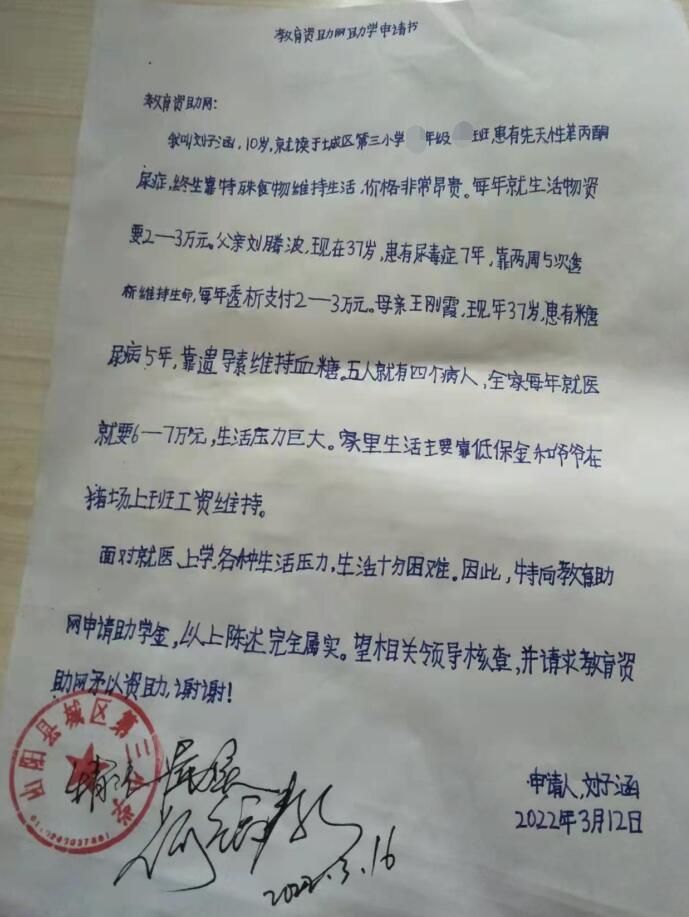 教育资助网助学申请书
教育资助网：
我叫刘子涵，10岁，就读于城区第三小学 年级 班，患有先天性苯丙酮
尿症，终生靠特殊食物维持生活，价格非常昂贵。每年就生活物资
要2—3万元。父亲刘腾波，现在37岁，患有尿毒症7年，靠两周5次透
析维持生命，每年透析支付2—3万元。母亲王刚霞，现年37岁，患有糖
尿病5年，靠遗导素维持血糖。五人就有四个病人，全家每年就医
就要6—7万元，生活压力巨大。家里生活主要靠低保金和爷爷在
猪场上班工资维持。
面对就医、上学，各种生活压力，生活十分困难。因此，特向教育助
网申请助学金，以上陈述完全属实。望相关领导核查，并请求教育资
助网予以资助，谢谢！
山阳县城区第三小学
情况属实
申请人，刘子涵
2022年3月12日
2022.3.16